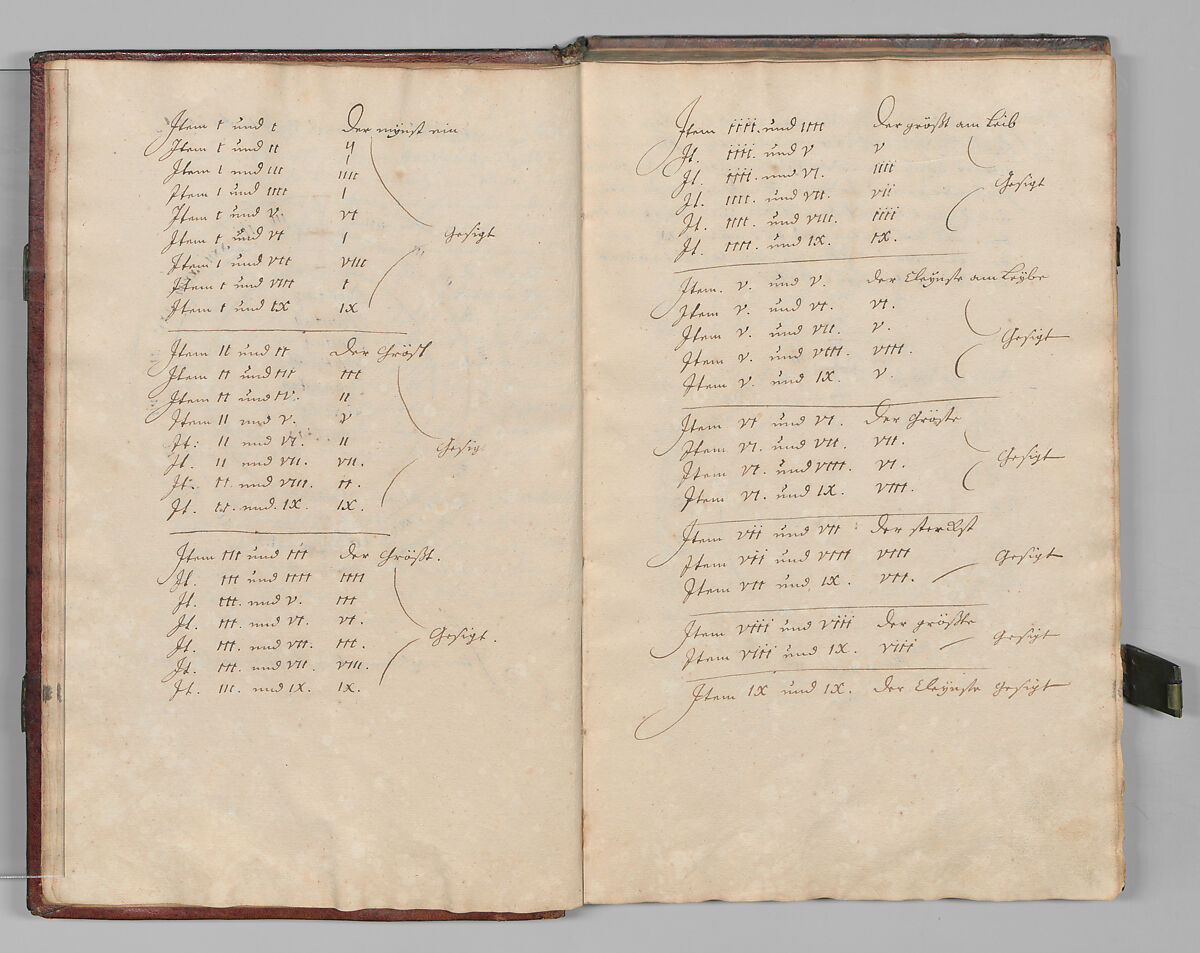 Item i und i Der mÿnst ein
Item i und ii ij
Item i und iii i
iiii
Item i und iiii i
Item i und v. vi
Item i und vi i
Item i und vii viii
Item i und viii i
Item i und ix ix
Gesigt
Item ii und ii der Gröst
Item ii und iii iii
Item ii und iv. ii
Item ii und v. v
It: ii und vi. ii
It. ii und vii. vii.
It: ii. und viii. ii.
It. ii. und. ix. ix.
Gesig
Item iii und iii der Größt.
It. iii und iiii iiii
It. iii. und v. iii
It. iii. und vi. vi.
It. iii. und vii. iii.
It. iii. und vii. viii.
It. iii. und ix. ix.
Gesigt.
Item iiii. und iiii der größt am Leib
It. iiii. und v v
It. iiii. und vi. iiii
It. iiii. und vii. vii
It. iiii. und viii. iiii
It. iiii. und ix. ix.
Gesigt
Item. v. und v. der Cleÿnste am Leÿbe
Item v. und vi. vi.
Item v. und vii. v.
Item v. und viii. viii.
Item v. und ix. v.
Gesigt
Item vi und vi. der Gröste
Item vi. und vii. vii.
Item vi. und viii. vi.
Item vi. und ix. viii.
Gesigt
Item vii und vii : der sterckst
Item vii und viii viii
Item vii und ix. vii.
Gesigt
Item viii und viii der größte
Item viii und ix. viii
Gesigt
Item ix und ix. der Cleÿnste gesigt